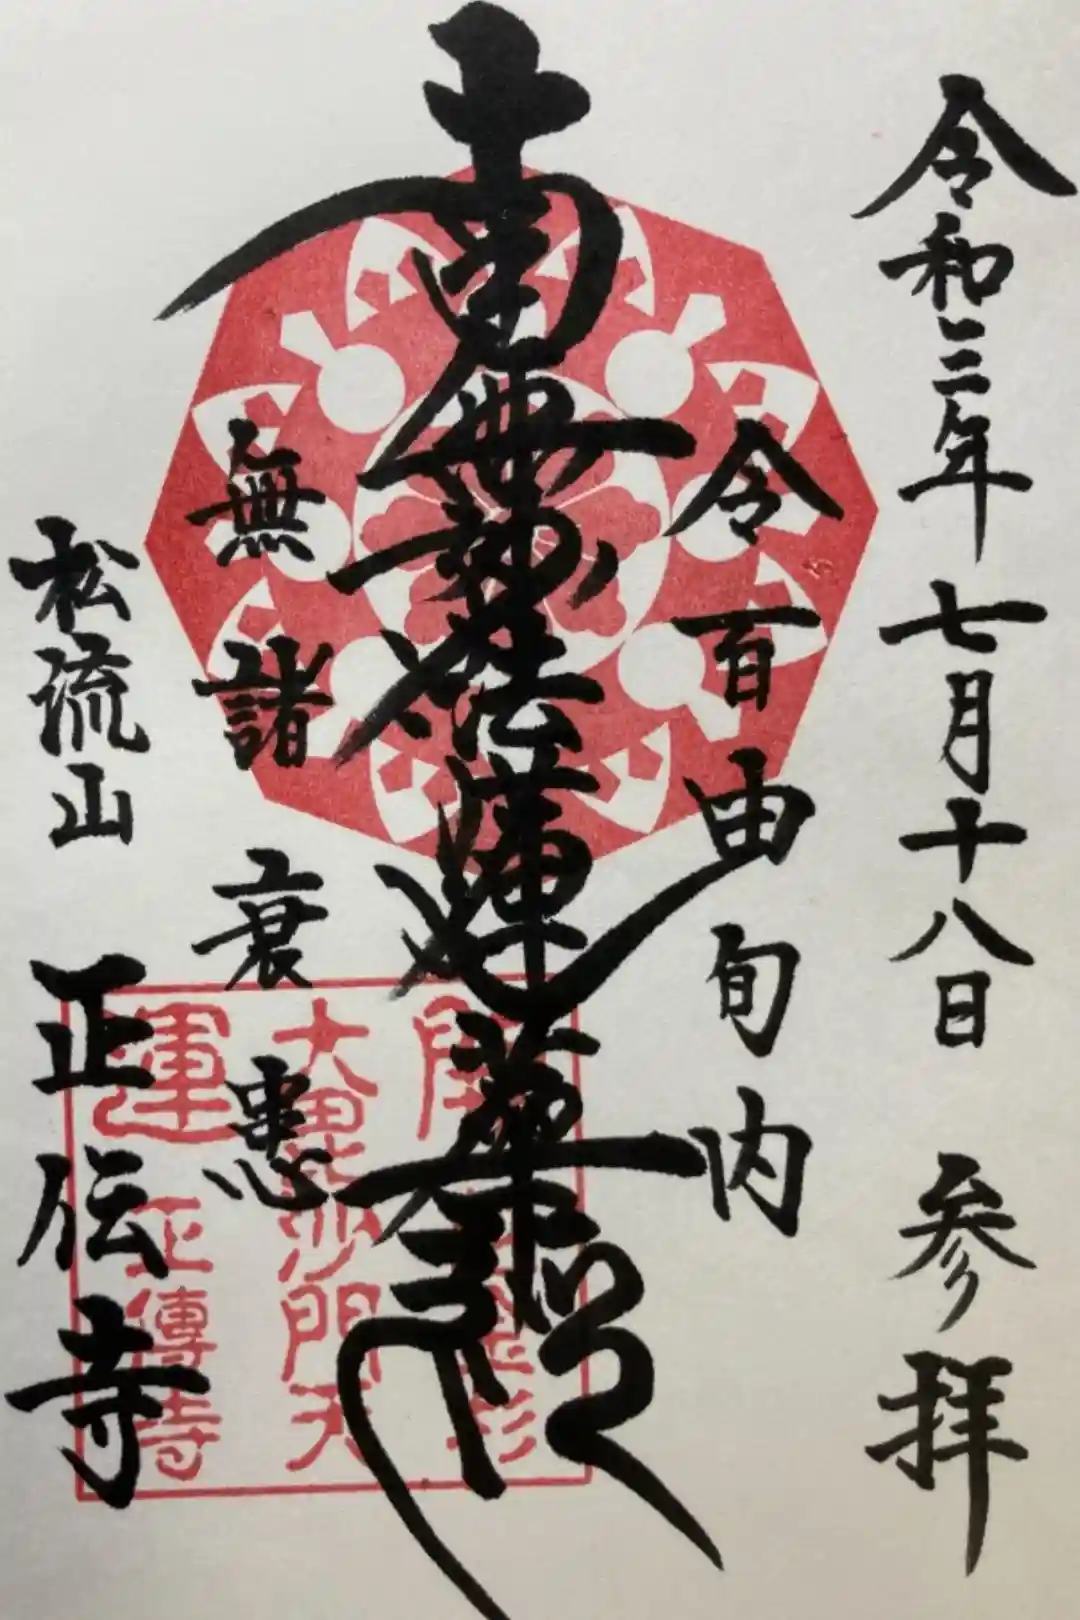 令和三年七月十八日 参拝
令百由旬内
南無妙法蓮華経
無諸衰患
松流山
正伝寺
大毘沙門天
運 正傳寺